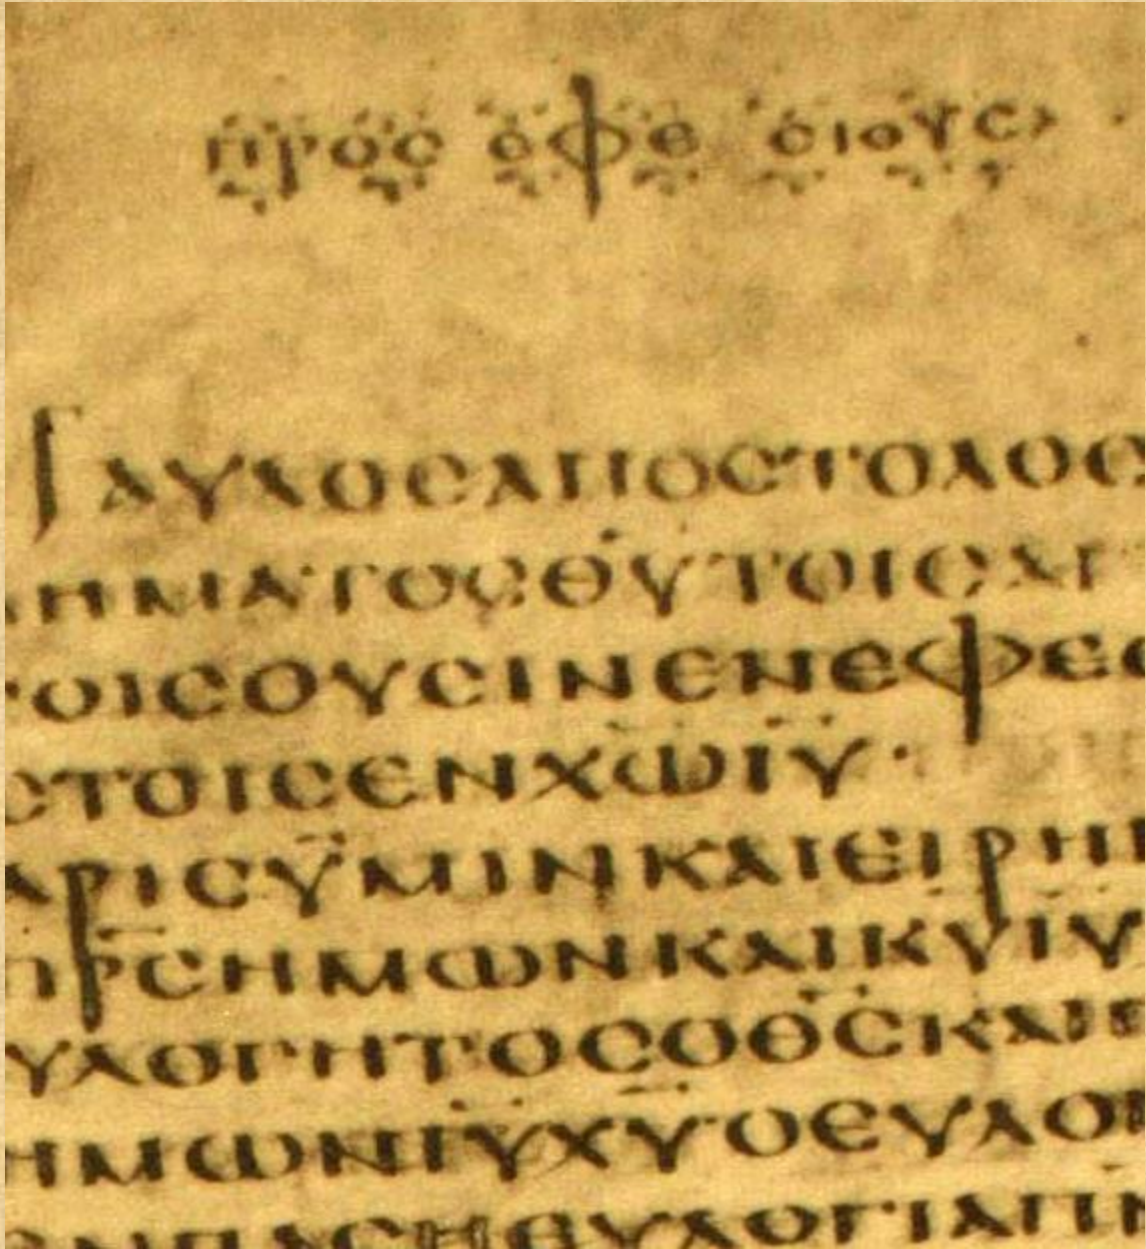 ΠΡΟΣ ΕΦΕΣΙΟΥΣ
ΠΑΥΛΟΣΑΠΟΣΤΟΛΟΣ
ΛΗΜΑΤΟΣΘΥΤΟΙΣΑΓ
ΤΟΙΣΟΥΣΙΝΕΝΕΦΕΣ
ΣΤΟΙΣΕΝΧΩΙΥ·
ΑΡΙΣΫΜΙΝΚΑΙΕΙΡΗΝ
ΠΡΣΗΜΩΝΚΑΙΚΥΙΥ
ΥΛΟΓΗΤΟΣΟΘΣΚΑΙ
ΗΜΩΝΙΥΧΥΟΕΥΛΟΓ
ΕΝΠΑΣΗΕΥΛΟΓΙΑΠΝ